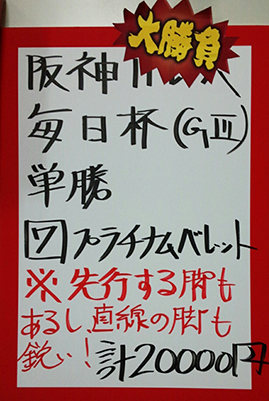 大勝負
阪神
毎日杯(GⅢ)
単勝
7 プラチナムバレット
※先行する脚も
あるし、直線の脚も
鋭い! 計20000円